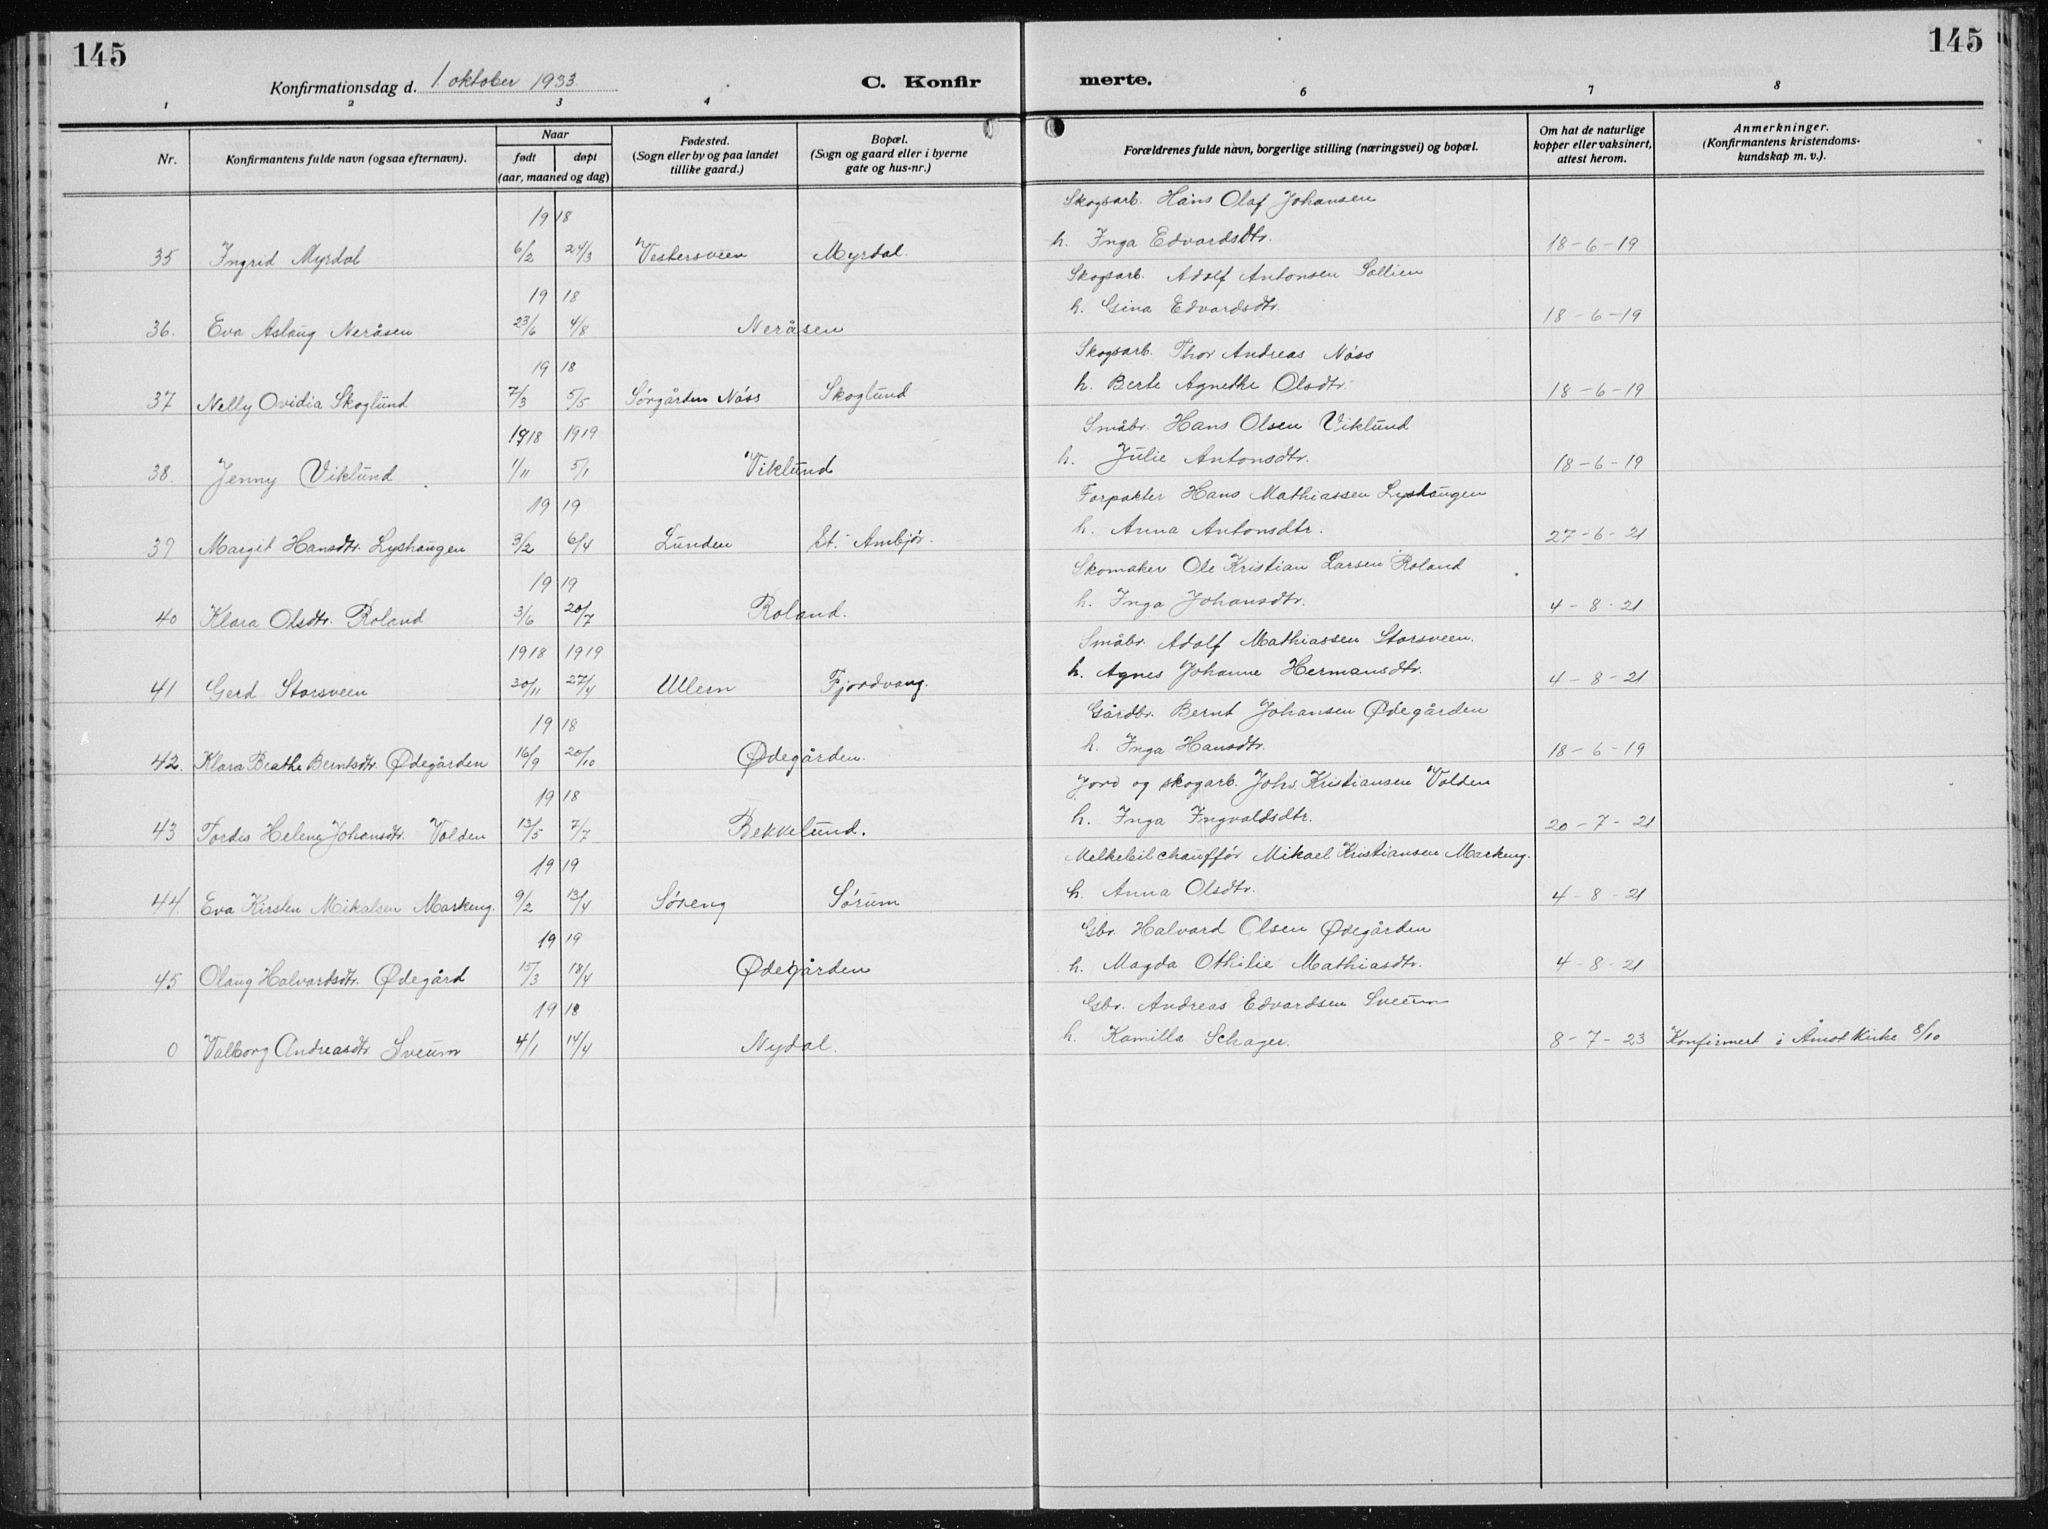 145
145
Konfirmationsdag d. 1. oktober 1933
C. Konfirmerte.
1 2 3 4 6 7 8
Nr.
Konfirmantens fulde navn (ogsaa efternavn).
Naar
født
døpt
(aar, maaned og dag)
Fødested.
(Sogn eller by og paa landet
tillike gaard.)
Bopæl.
(Sogn og gaard eller i byerne
gate og hus-nr.)
Forældrenes fulde navn, borgerlige stilling (næringsvei) og bopæl.
Om hat de naturlige
kopper eller vaksinert,
attest herom.
Anmerkninger.
(Konfirmantens kristendoms-
kundskap m. v.).
1918 Skogsarb. Hans Olaf Johansen
35 Ingrid Myrdal 6/2 24/3 Vestersveen Myrdal. h. Inga Edvardsdtr. 18-6-19
1918 Skogsarb. Adolf Antonsen Sollien
36. Eva Aslaug Neråsen 23/6 4/8 Neråsen h. Gina Edvardsdtr. 18-6-19
1918 Skogsarb. Thor Andreas Näss
37 Nelly Ovidia Skoglund 7/3 5/5 Sørgården Näss Skoglund h. Berte Agnethe Olsdtr. 18-6-19
1918 1919 Småbr. Hans Olsen Viklund
38. Jenny Viklund 1/11 5/1 Viklund h. Julie Antonsdtr. 18-6-19
1919 Forpakter Hans Mathiassen Lyshaugen
39 Margit Hansdtr. Lyshaugen 3/2 6/4 Lunden St. Ambjør. h. Anna Antonsdtr. 27-6-21
1919 Skomaker Ole Kristian Larsen Roland
40 Klara Olsdtr. Roland 3/6 20/7 Roland. h. Inga Johansdtr. 4-8-21
1918 1919 Småbr. Adolf Mathiassen Storsveen.
41 Gerd Storsveen 30/11 27/4 Ullern Fjordvang. h. Agnes Johanne Hermansdtr. 4-8-21
1918 Gårdbr. Bernt Johansen Ødegården
42. Klara Beathe Berntsdtr. Ødegården 16/9 20/10 Ødegården. h. Inga Hansdtr. 18-6-19
1918 Jord og skogarb. Johs. Kristiansen Volden
43 Tordis Helene Johansdtr. Volden 13/5 7/7 Bekkelund. h. Inga Ingvaldsdtr. 20-7-21
1919 Melkebilchauffør Mikael Kristiansen Markeng.
44. Eva Kirsten Mikalsen Markeng. 9/2 13/4 Søreng Sørum h. Anna Olsdtr. 4-8-21
1919 Gbr. Halvard Olsen Ødegården
45 Olaug Halvardsdtr. Ødegård 15/3 18/4 Ødegården h. Magda Othilie Mathiasdtr. 4-8-21
1918 Gbr. Andreas Edvardsen Sveum
0 Valborg Andreasdtr. Sveum 4/1 14/4 Nydal. h. Kamilla Schager. 8-7-23 Konfirmert i Åmot kirke 8/10